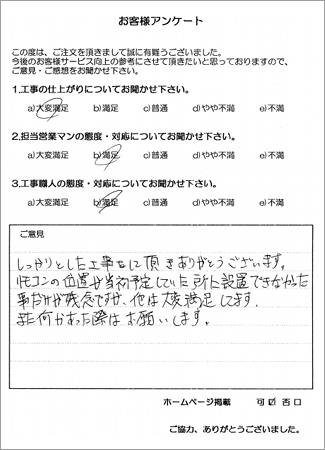 お客様アンケート
この度は、ご注文を頂きまして誠に有難うございました。
今後のお客様サービス向上の参考にさせて頂きたいと思っておりますので、
ご意見・ご感想をお聞かせ下さい。
1.工事の仕上がりについてお聞かせ下さい。
a)大変満足 b)満足 c)普通 d)やや不満 e)不満
2.担当営業マンの態度・対応についてお聞かせ下さい。
a)大変満足 b)満足 c)普通 d)やや不満 e)不満
3.工事職人の態度・対応についてお聞かせ下さい。
a)大変満足 b)満足 c)普通 d)やや不満 e)不満
ご意見
しっかりとした工事をして頂きありがとうございます。
リモコンの位置が当初予定していた所に設置できなかった
事だけが残念ですが、他は大変満足してます。
また何かあった際はお願いします。
ホームページ掲載 可 ☑ 否 口
ご協力、ありがとうございました。